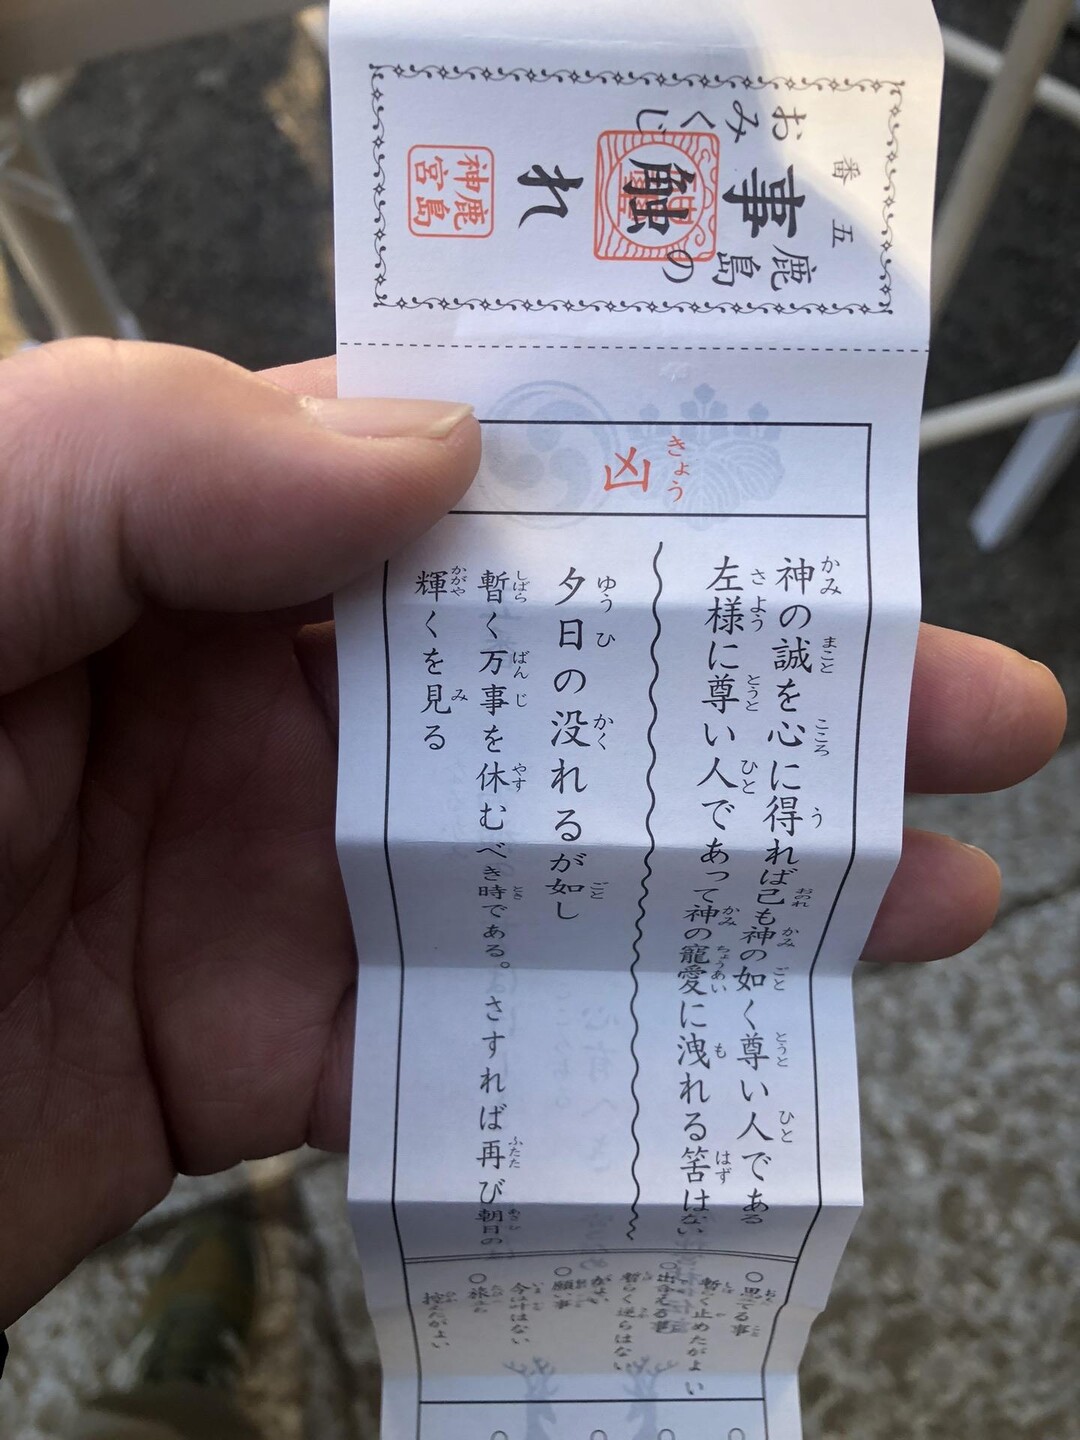 番五
鹿島の
事触れ
おみくじ
鹿島
神宮
きょう
凶
神の誠を心に得れば己も神の如く尊い人である
左様に尊い人であって神の寵愛に洩れる筈はない
夕日の没れるが如し
暫く万事を休むべき時である。さすれば再び朝日の
輝くを見る
○思てる事
暫らく止めたがよい
○出合える事
暫らく逆らはない
がよい
○願い事
今は叶はない
○旅立ち
控えがよい